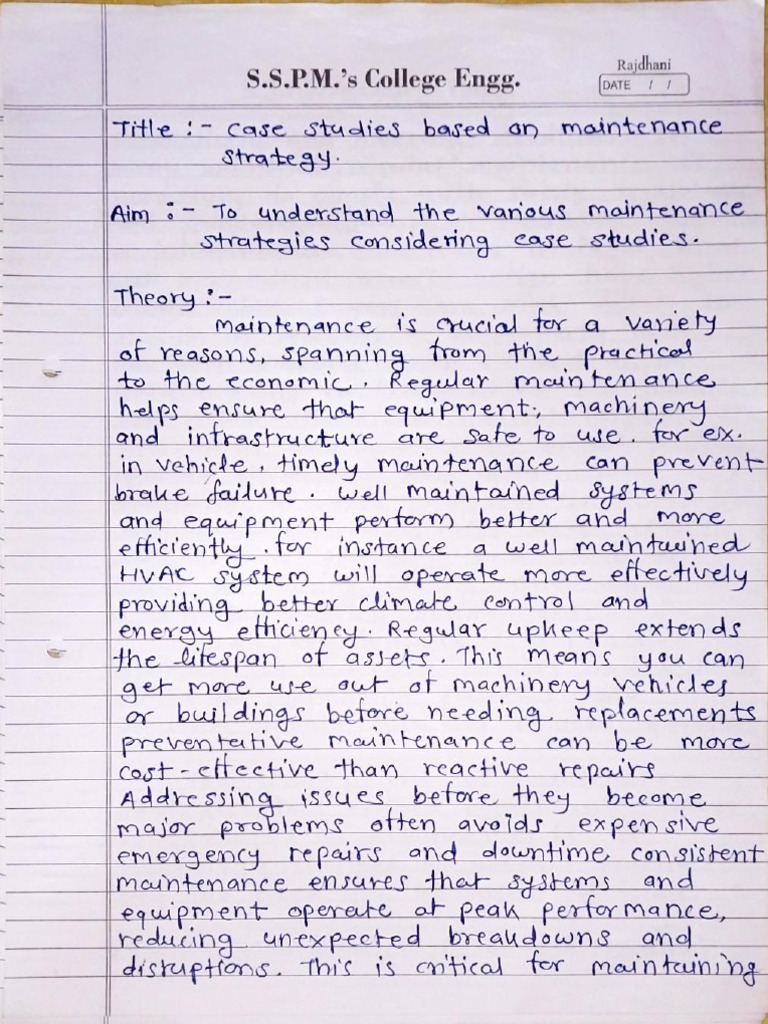 S.S.P.M.'s College Engg.
Rajdhani
DATE / /
Title :- Case studies based on maintenance
strategy.
Aim :- To understand the various maintenance
strategies considering case studies.
Theory :-
maintenance is crucial for a variety
of reasons, spanning from the practical
to the economic. Regular maintenance
helps ensure that equipment, machinery
and infrastructure are safe to use. for ex.
in vehicle, timely maintenance can prevent
brake failure. well maintained systems
and equipment perform better and more
efficiently. for instance a well maintained
HVAC system will operate more effectively
providing better climate control and
energy efficiency. Regular upkeep extends
the lifespan of assets. This means you can
get more use out of machinery vehicles
or buildings before needing replacements
preventative maintenance can be more
cost-effective than reactive repairs
Addressing issues before they become
major problems often avoids expensive
emergency repairs and downtime consistent
maintenance ensures that systems and
equipment operate at peak performance,
reducing unexpected breakdowns and
disruptions. This is critical for maintaining